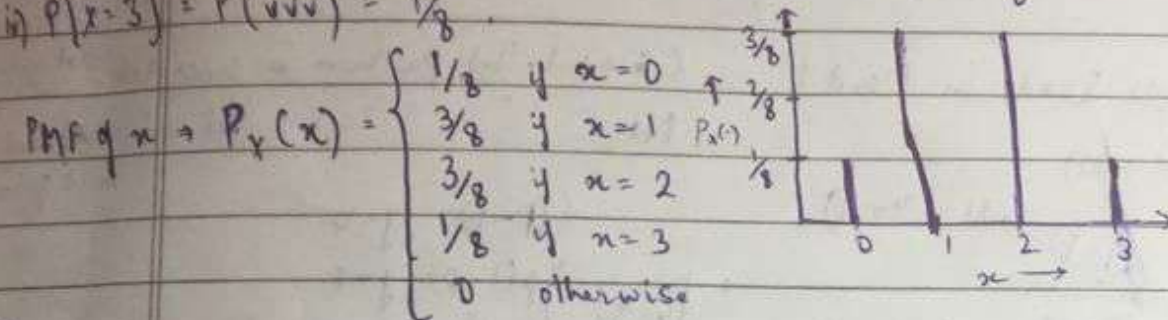 iv) P(X=3) = P(VVV) = 1/8.
PMF of x → P_X(x) = { 1/8 if x=0
3/8 if x=1
3/8 if x=2
1/8 if x=3
0 otherwise
3/8
↑ 2/8
P_X(·)
1/8
0 1 2 3
x →